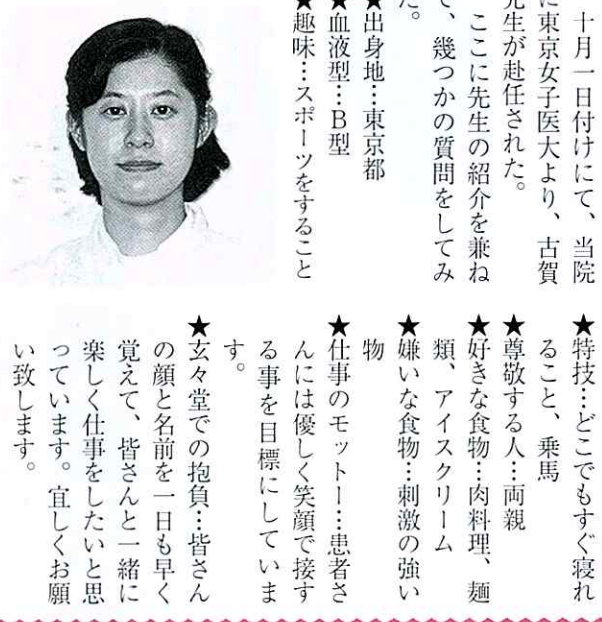 十月一日付けにて、当院
に東京女子医大より、古賀
先生が赴任された。
ここに先生の紹介を兼ね
て、幾つかの質問をしてみ
た。
★出身地…東京都
★血液型…B型
★趣味…スポーツをすること
★特技…どこでもすぐ寝れ
ること、乗馬
★尊敬する人…両親
★好きな食物…肉料理、麺
類、アイスクリーム
★嫌いな食物…刺激の強い
物
★仕事のモットー…患者さ
んには優しく笑顔で接す
る事を目標にしていま
す。
★玄々堂での抱負…皆さん
の顔と名前を一日も早く
覚えて、皆さんと一緒に
楽しく仕事をしたいと思
っています。宜しくお願
い致します。